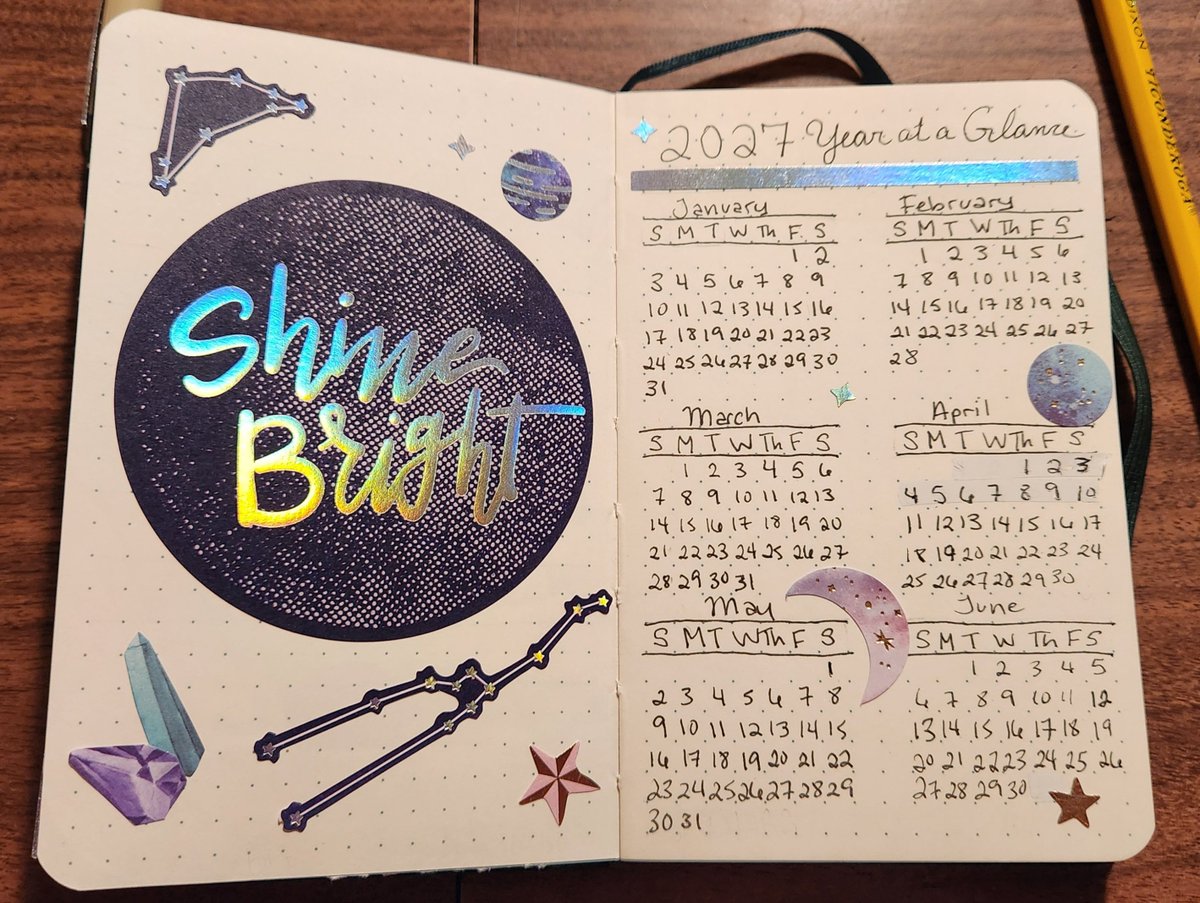 Shine
Bright
DIXON TICONDEROGA
2027 Year at a Glance
January
S M T W Th F S
1 2
3 4 5 6 7 8 9
10 11 12 13 14 15 16
17 18 19 20 21 22 23
24 25 26 27 28 29 30
31
February
S M T W Th F S
1 2 3 4 5 6
7 8 9 10 11 12 13
14 15 16 17 18 19 20
21 22 23 24 25 26 27
28
March
S M T W Th F S
1 2 3 4 5 6
7 8 9 10 11 12 13
14 15 16 17 18 19 20
21 22 23 24 25 26 27
28 29 30 31
April
S M T W Th F S
1 2 3
4 5 6 7 8 9 10
11 12 13 14 15 16 17
18 19 20 21 22 23 24
25 26 27 28 29 30
May
S M T W Th F S
1
2 3 4 5 6 7 8
9 10 11 12 13 14 15
16 17 18 19 20 21 22
23 24 25 26 27 28 29
30 31
June
S M T W Th F S
1 2 3 4 5
6 7 8 9 10 11 12
13 14 15 16 17 18 19
20 21 22 23 24 25 26
27 28 29 30